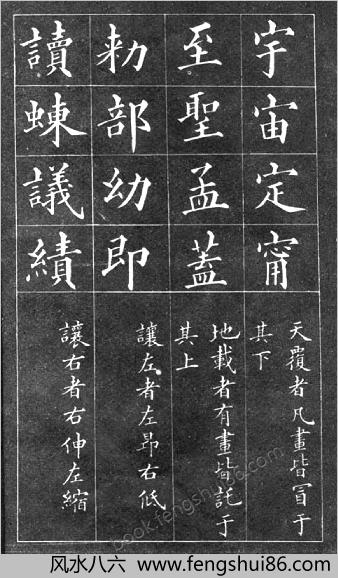 宇宙定甯
天覆者凡畫皆冒于
其下
至聖孟蓋
地載者有畫皆託于
其上
勑部幼即
讓左者左昂右低
讀蝀議績
讓右者右伸左縮
book.fengshui86.com
风水八六 www.fengshui86.com